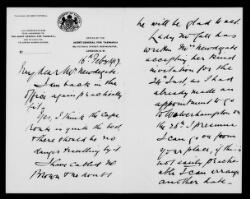 AGENT GENERAL FOR TASMANIA
16th Feby 1917
My dear Mr Newdegate
I am back in the
office again practically
fit.
Yes, I think the Cape
route is quite the best
There should be no
danger travelling by it
I have called Mr
Brown &
he will be glad to see
Lady McCall has
written Mrs Newdegate
accepting her kind
invitation for the
24th but as I had
already made an
appointment to go
to Wolverhampton on
the 26th I presume
I can go from
your place, if this is
not easily practic-
able I can arrange
another date.